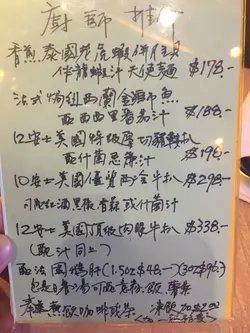 廚師推介
香煎泰國老虎蝦併帶子
伴龍蝦汁天使麵 $178.-
法式焗紐西蘭金鯧魚
配西西里番茄汁 $188.-
12安士美國特級厚切豬鞍扒
配什菌忌廉汁 $196.-
10安士美國優質西冷牛扒 $298.-
可跣紅酒黑椒香蒜或什菌汁
12安士美國頂級肉眼牛扒 $338.-
(配汁同上)
配法國鴨肝 (1.5oz $48.-) (3oz $96.-)
包是日餐湯可西蘭花飯薯菜
奉送熱飲咖啡或茶 凍飲